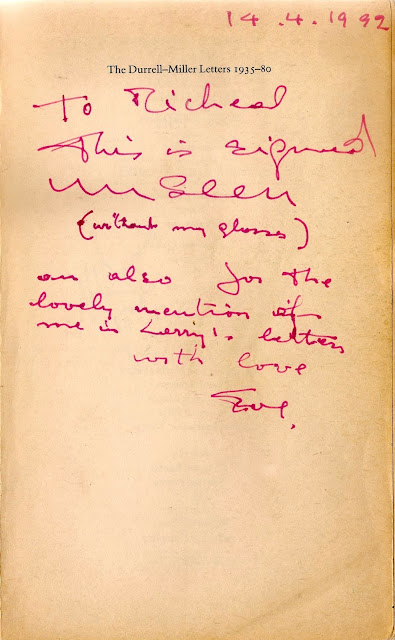 14.4.1992
The Durrell–Miller Letters 1935–80
To Micheal
this is signed
unseen
(without my glasses)
an also for the
lovely mention of
me in Larry's letters
with love
Eve.